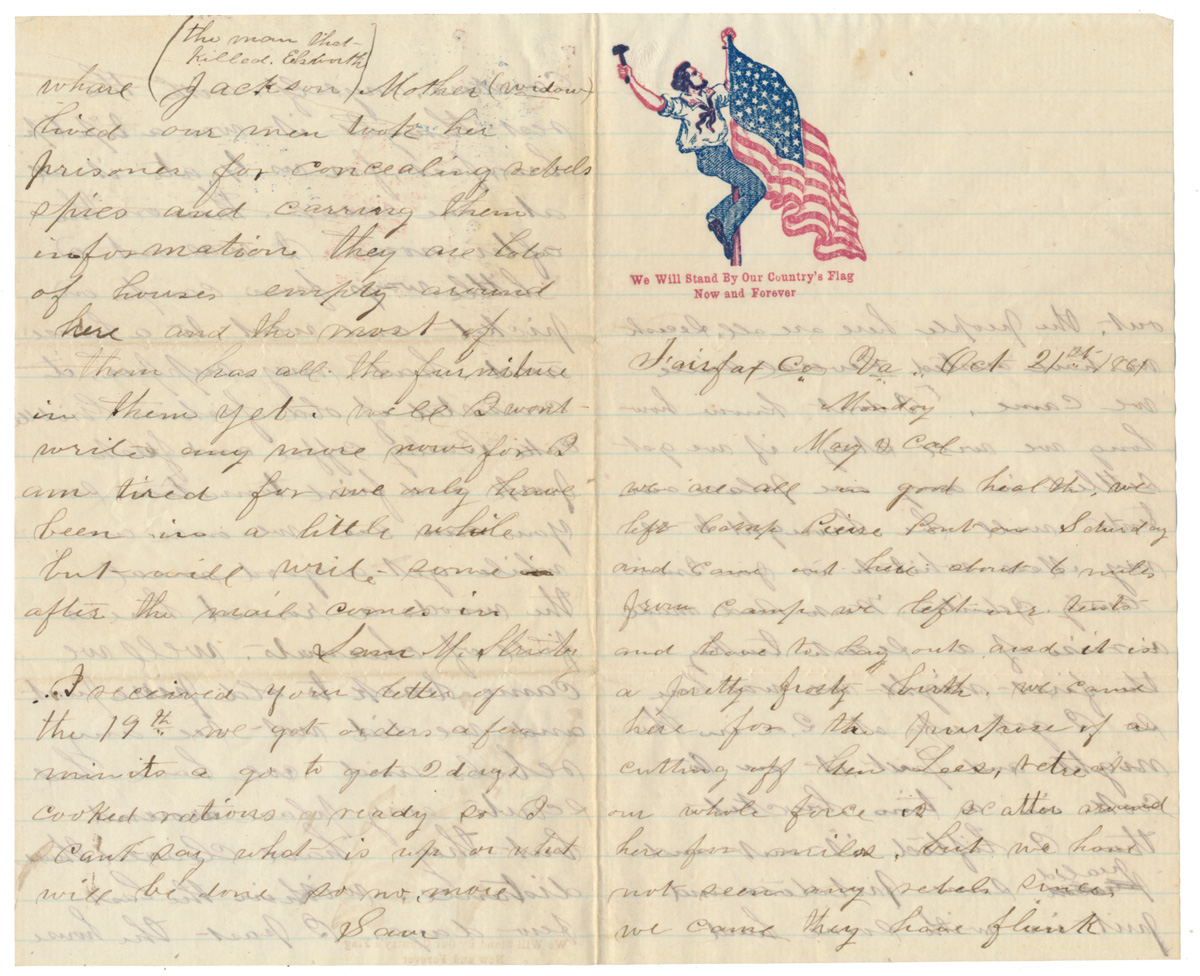 (the man that
killed. Elsworth)
whare (Jackson) Mother (widow)
lived our men took her
prisoner for concealing rebels
spies and carring them
information they are lots
of houses empty around
here and the most of
them has all the furniture
in them yet. well I wont
write any more now for I
am tired for we only have
been in a little while
but will write some
after the mail comes in
Sam M.
I received your letter of
the 19th we got orders a few
minits a go to get 2 days
cooked rations ready so I
cant say what is up or what
will be done so no more
Sam
We Will Stand By Our Country's Flag
Now and Forever
Fairfax Co. Va. Oct 21st 1861
Monday
May & Cal
we are all in good health, we
left Camp Pierce Pont on Saturday
and came out here about 6 miles
from camp we left our tents
and have to lay out and it is
a pretty frosty birth. we came
here for the purpose of a
cutting off Gen Lees, retreat
our whole force is scatter around
here for miles, but we have
not seen any rebels since
we came they have flunk